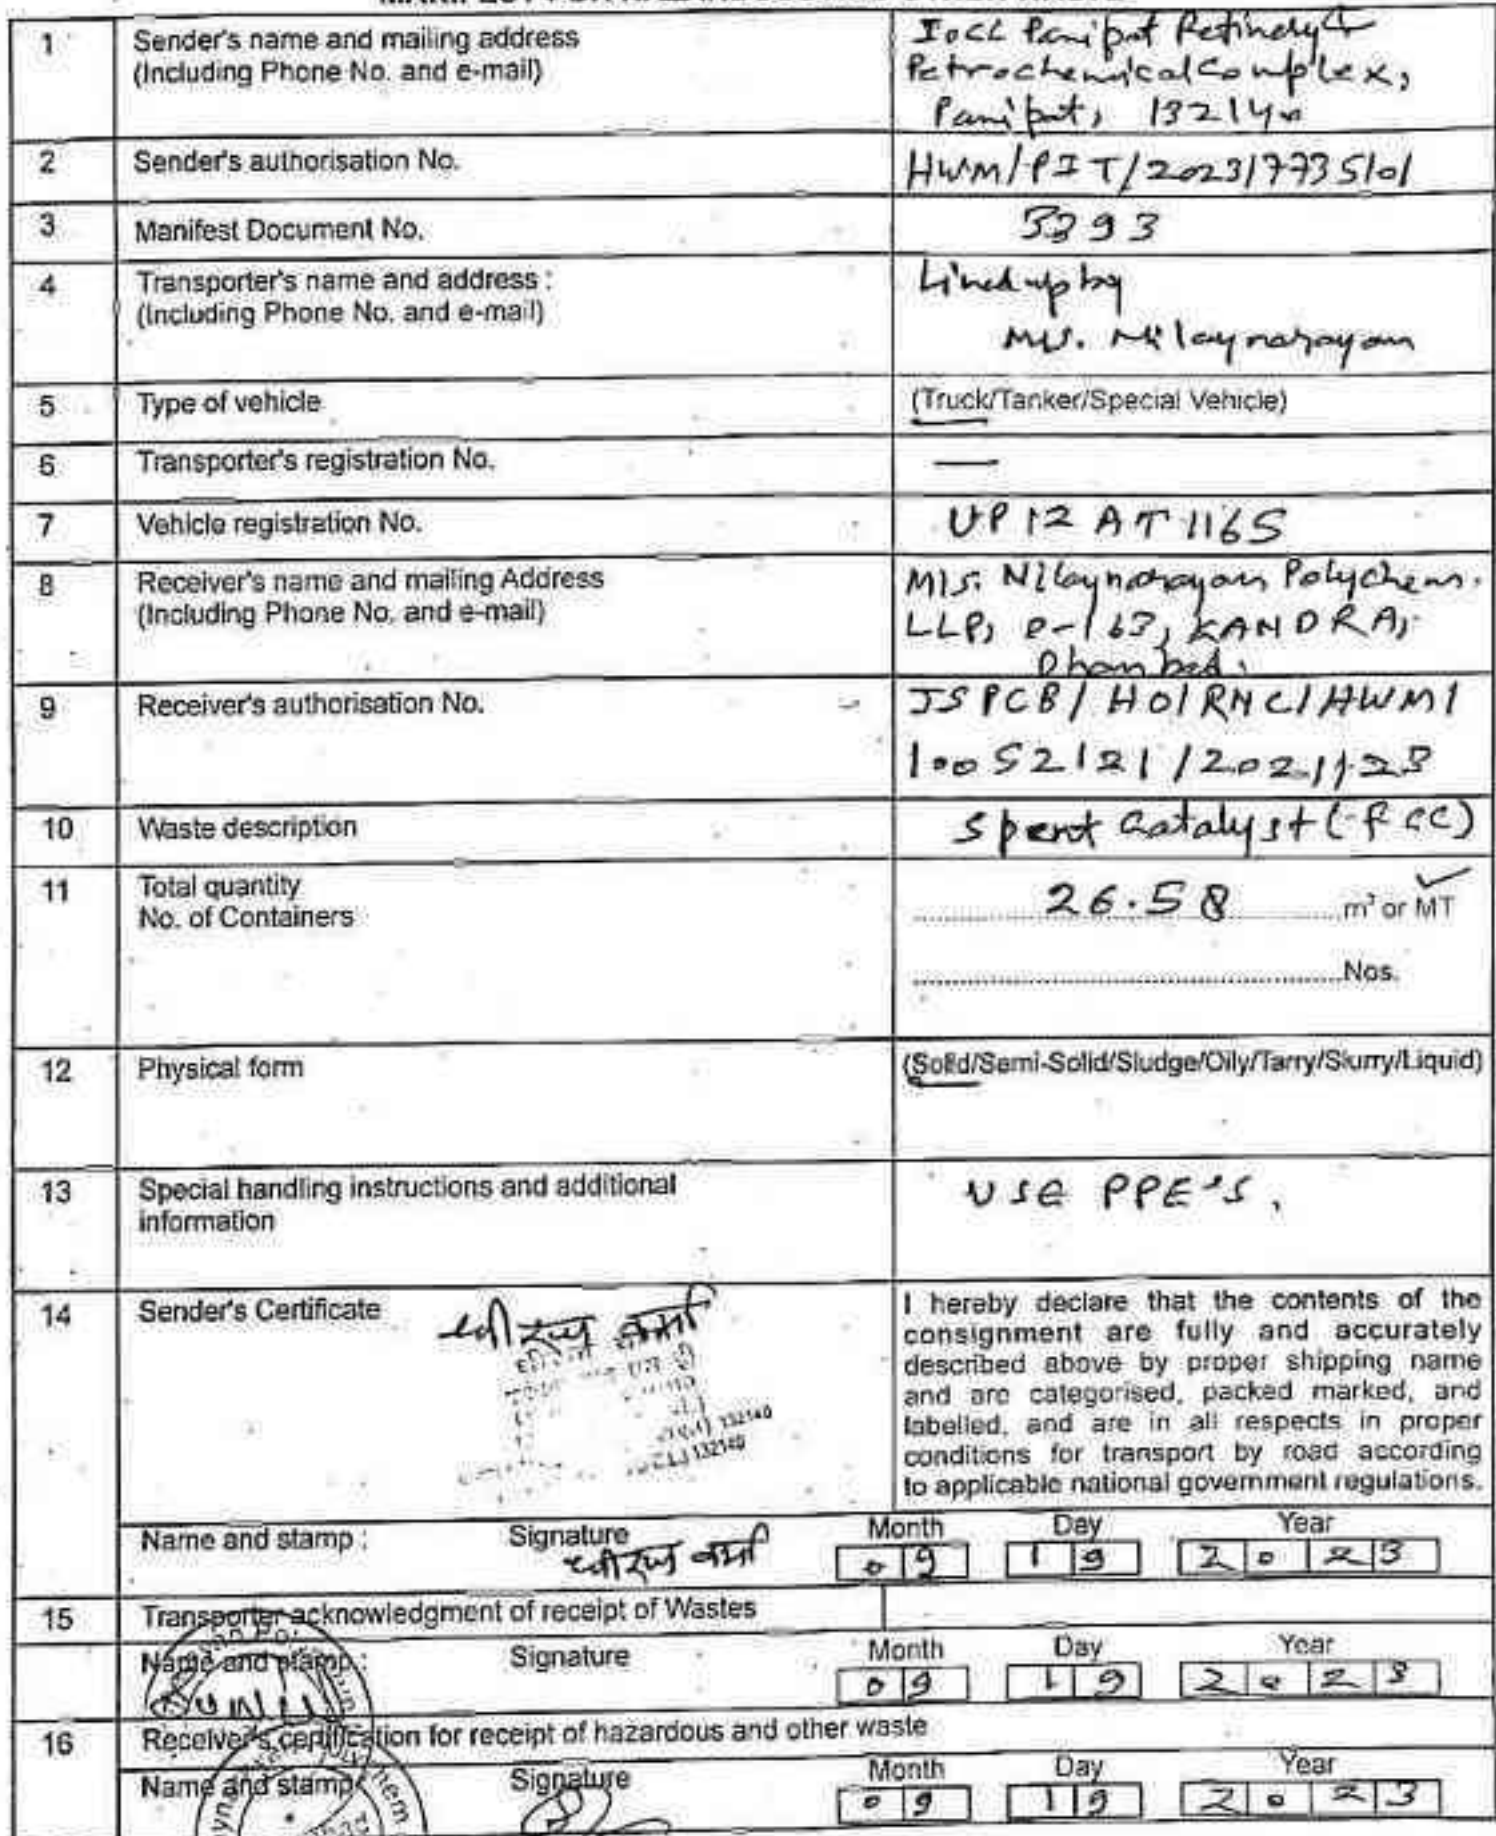 1 Sender's name and mailing address
(Including Phone No. and e-mail)
IOCL Panipat Refinery &
Petrochemical Complex,
Panipat, 132140
2 Sender's authorisation No. HWM/PIT/2023/7735101
3 Manifest Document No. 5393
4 Transporter's name and address :
(Including Phone No. and e-mail)
Lined up by
M/S. Nilaynarayan
5 Type of vehicle (Truck/Tanker/Special Vehicle)
6 Transporter's registration No. —
7 Vehicle registration No. UP 12 AT 1165
8 Receiver's name and mailing Address
(Including Phone No. and e-mail)
M/S. Nilaynarayan Polychem.
LLP, P-163, KANDRA,
Dhanbad.
9 Receiver's authorisation No.
JSPCB/HO/RNC/HWM/
10052121/2021/23
10 Waste description Spent Catalyst (FCC)
11 Total quantity 26.58 m³ or MT
No. of Containers
Nos.
12 Physical form (Solid/Semi-Solid/Sludge/Oily/Tarry/Slurry/Liquid)
13 Special handling instructions and additional
information
USE PPE'S.
14 Sender's Certificate
132140
132140
I hereby declare that the contents of the
consignment are fully and accurately
described above by proper shipping name
and are categorised, packed marked, and
labelled, and are in all respects in proper
conditions for transport by road according
to applicable national government regulations.
Name and stamp : Signature Month Day Year
09 19 2023
15 Transporter acknowledgment of receipt of Wastes
Name and stamp : Signature Month Day Year
09 19 2023
16 Receiver's certification for receipt of hazardous and other waste
Name and stamp Signature Month Day Year
09 19 2023